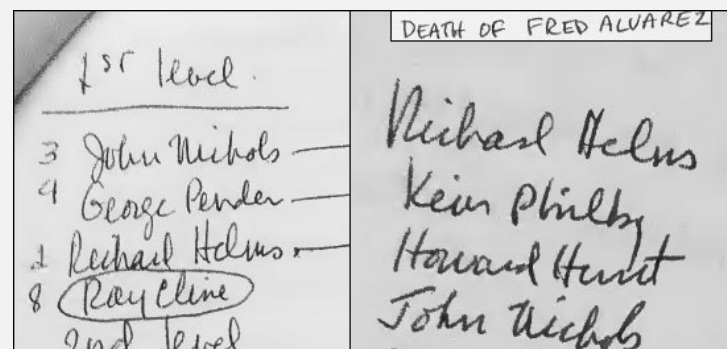 1st level.
3 John Nichols
4 George Pender
1 Richard Helms
8 Ray Cline
2nd level
DEATH OF FRED ALVAREZ
Richard Helms
Kim Philby
Howard Hunt
John Nichols